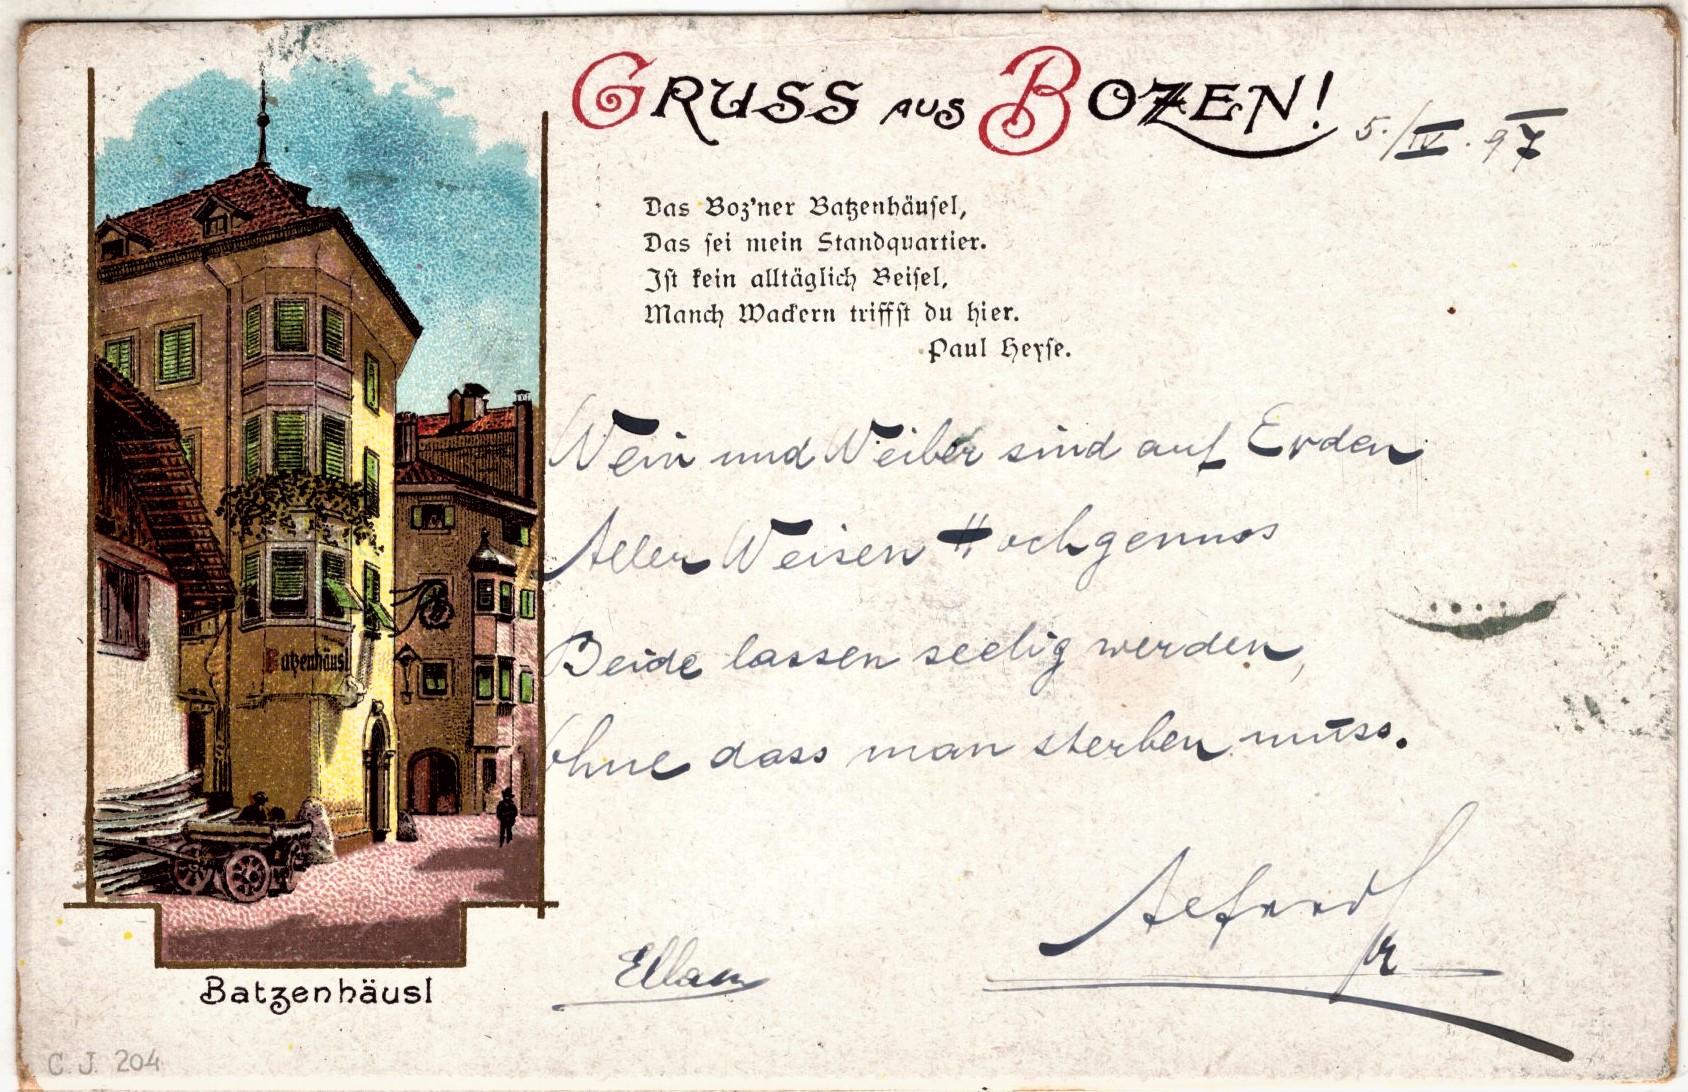 GRUSS AUS BOZEN!
5./IV. 97
Das Boz'ner Batzenhäusel,
Das sei mein Standquartier.
Ist kein alltäglich Beisel,
Manch Wackern triffst du hier.
Paul Heyse.
Wein und Weiber sind auf Erden
Aller Weisen Hochgenuss
Beide lassen seelig werden,
Ohne dass man sterben muss.
Alfred
Batzenhäusl
Batzenhäusl
C. J. 204